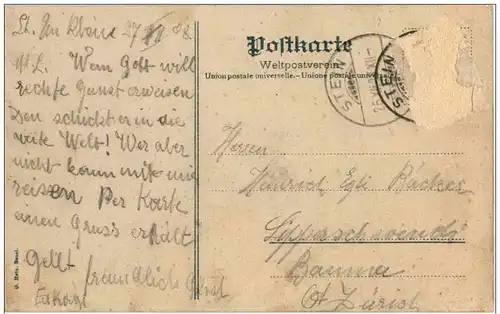 27 VII 08.
M. L. Wem Gott will
rechte Gunst erweisen
Den schickt er in die
weite Welt! Wer aber
nicht kann mit uns
reisen Per Karte
einen Gruss erhält
Gellt freundlich
Postkarte
Weltpostverein
Union postale universelle.
STEIN
STEIN
Herrn
Heinrich Egli Bäcker
Lipperschwendi
Bauma
Ct Zürich